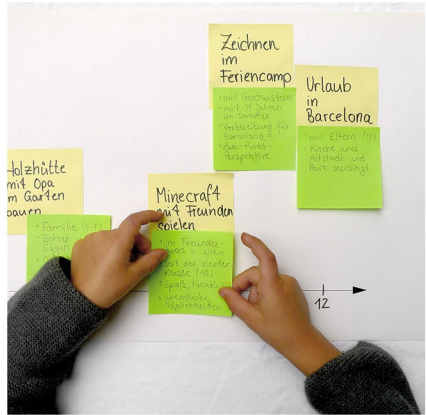 Zeichnen
im
Feriencamp
• mit Geschwistern
• mit 11 Jahren
im Sommer
• Vorbereitung für
Barcelona
• Zwei-Punkt-
Perspektive
Urlaub
in
Barcelona
• mit Eltern
• Kirche und
Altstadt und
Park besichtigt
Holzhütte
mit Opa
im Garten
bauen
• Familie
• Bohren
Sägen
Minecraft
mit Freunden
spielen
• im Freundes-
kreis o. allein
• seit der vierten
Klasse
• Spaß,
• unendliche
Möglichkeiten
12